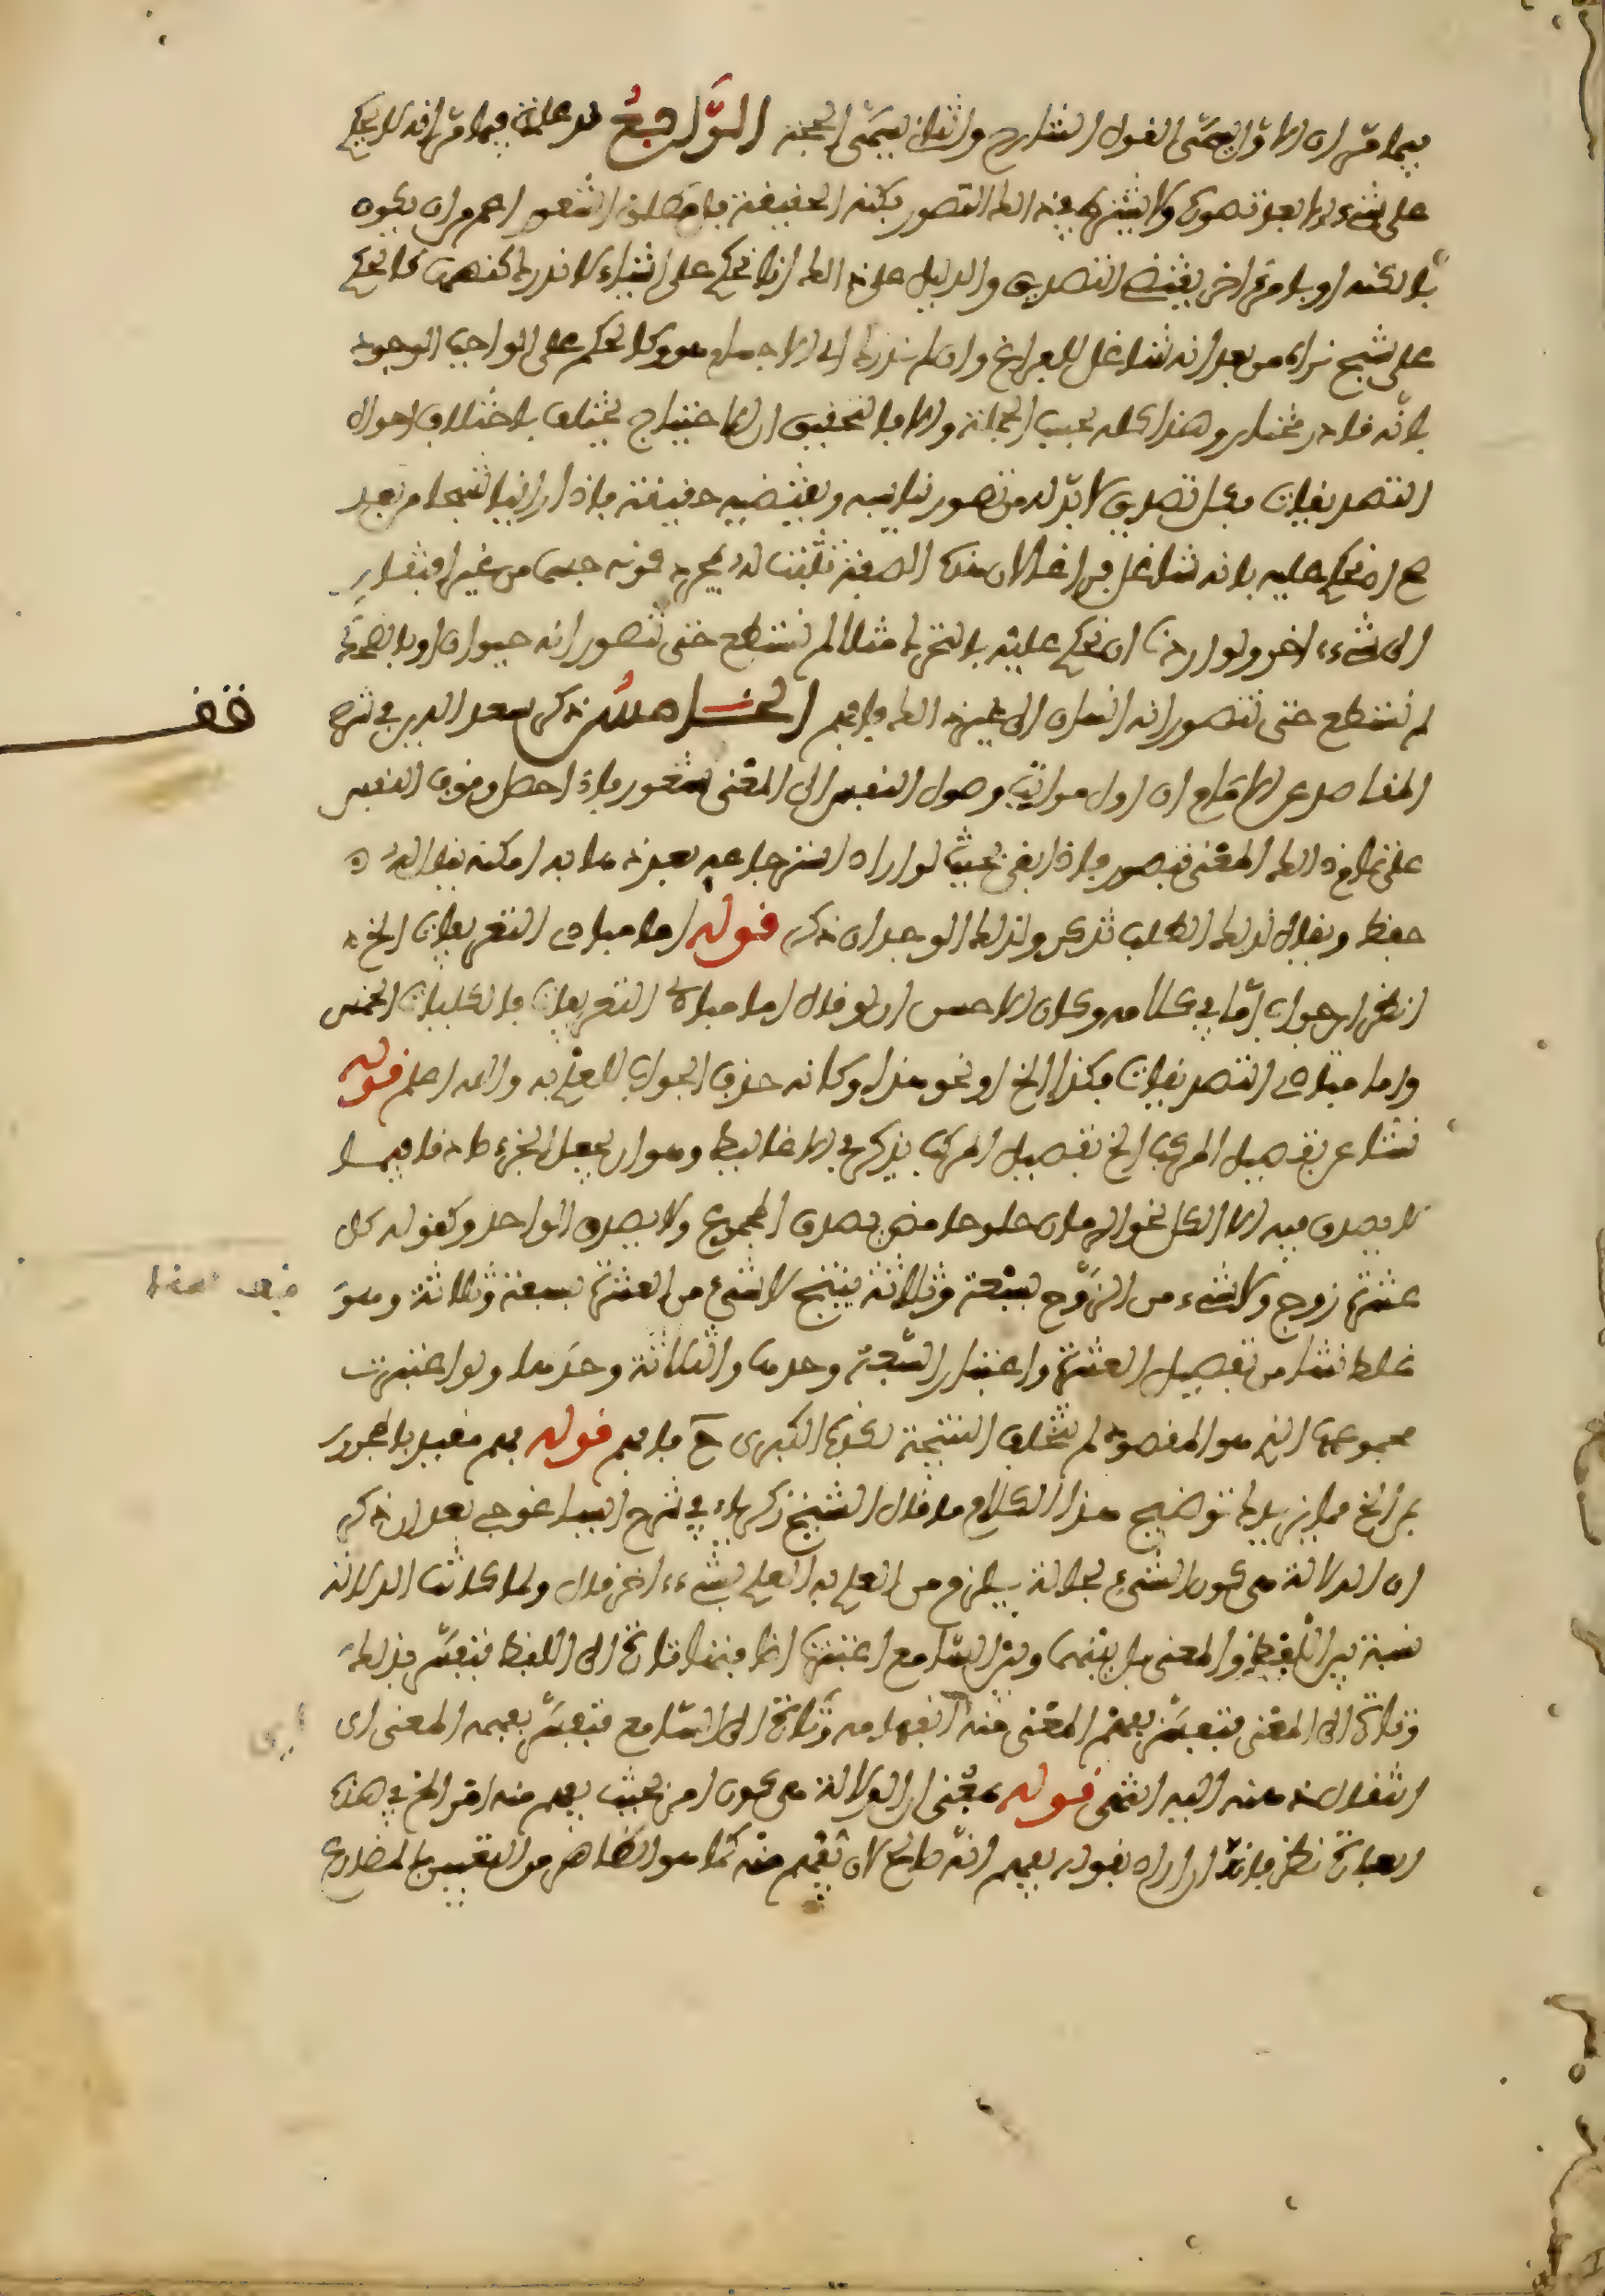 فيما مر ان الاول يسمى القول الشارح والثاني يسمى الحجة الرابع قد علمت فيما مر انه لا يحكم
على شيء الا بعد تصوره ولا يشترط في ذالك التصور بكنه الحقيقة بل مطلق الشعور اعم من ان يكون
بالكنه او بامر ما اخر يقتضي التصديق والدليل على ذالك انا نحكم على اشياء لا ندرك كنهها كما نحكم
على شبح نراه من بعد انه شاغل للفراغ وان لم ندرك الا اجماله وكما نحكم على الواجب الوجود
بانه قادر مختار وهذا كله بحسب الجملة والا فالتحقيق ان الاحتياج يختلف باختلاف احوال
التصديقات فكل تصديق لا بد له من تصور يناسبه ويقتضيه حقيقة فاذا راينا شبحا من بعد
صح ان نحكم عليه بانه شاغل فراغا لان هذه الصفة تثبت له بمجرد كونه جسما من غير افتقار
الى شيء اخر ولو اردنا ان نحكم عليه بالتحرك مثلا لم نستطع حتى نتصور انه حيوان او بالضحك
لم نستطع حتى نتصور انه انسان الى غير ذالك فافهم الخامس ذكر سعد الدين في شرح
المقاصد عن الامام ان اول مراتب وصول النفس الى المعنى شعور فاذا حصل وقوف النفس
على تمام ذالك المعنى فتصور فاذا بقي بحيث لو اراد استرجاعه بعد ذهابه امكنه يقال له
حفظ ويقال لذلك الطلب تذكر ولذلك الوجدان ذكر قوله اما مبادي التعريفات الخ
انظر اين جواب اما في كلامه وكان الاحسن ان لو قال اما مبادي التعريفات فالكليات الخمس
واما مبادي التصديقات فكذا الخ او نحو هذا وكانه حذف الجواب للعلم به والله اعلم قوله
نشا عن تفصيل المركب الخ تفصيل المركب يذكر في الاغاليط وهو ان يجعل الجزء صادقا فيما
لا يصدق فيه الا الكل نحو الرمان حلو حامض يصدق المجموع ولا يصدق الواحد وكقوله كل
عشرة زوج ولا شيء من الزوج بسبعة وثلاثة ينتج لا شيء من العشرة بسبعة وثلاثة وهو
غلط نشا من تفصيل العشرة واعتبار السبعة وحدها والثلاثة وحدها ولو اعتبرت
مجموعها الذي هو المقصود لم تتخلف النتيجة لكذب الكبرى ح فافهم قوله فهم مقيد بالمجرور
بمن الخ مما يزيدك توضيح هذا الكلام ما قال الشيخ زكرياء في شرح ايساغوجي بعد ان ذكر
ان الدلالة هي كون الشيء بحالة يلزم من العلم به العلم بشيء اخر قال ولما كانت الدلالة
نسبة بين اللفظ والمعنى بل بينهما وبين السامع اعتبرت اضافتها تارة الى اللفظ فتفسر بذلك
وتارة الى المعنى فتفسر بفهم المعنى منه اي انفهامه وتارة الى السامع فتفسر بفهمه المعنى اى
انتقال ذهنه اليه انتهى قوله معنى ان الدلالة هي كون امر بحيث يفهم منه امر الخ في هذه
العبارة نظر فانه ان اراد بقوله يفهم انه صالح لان يفهم منه كما هو الظاهر من التعبير بالمضارع